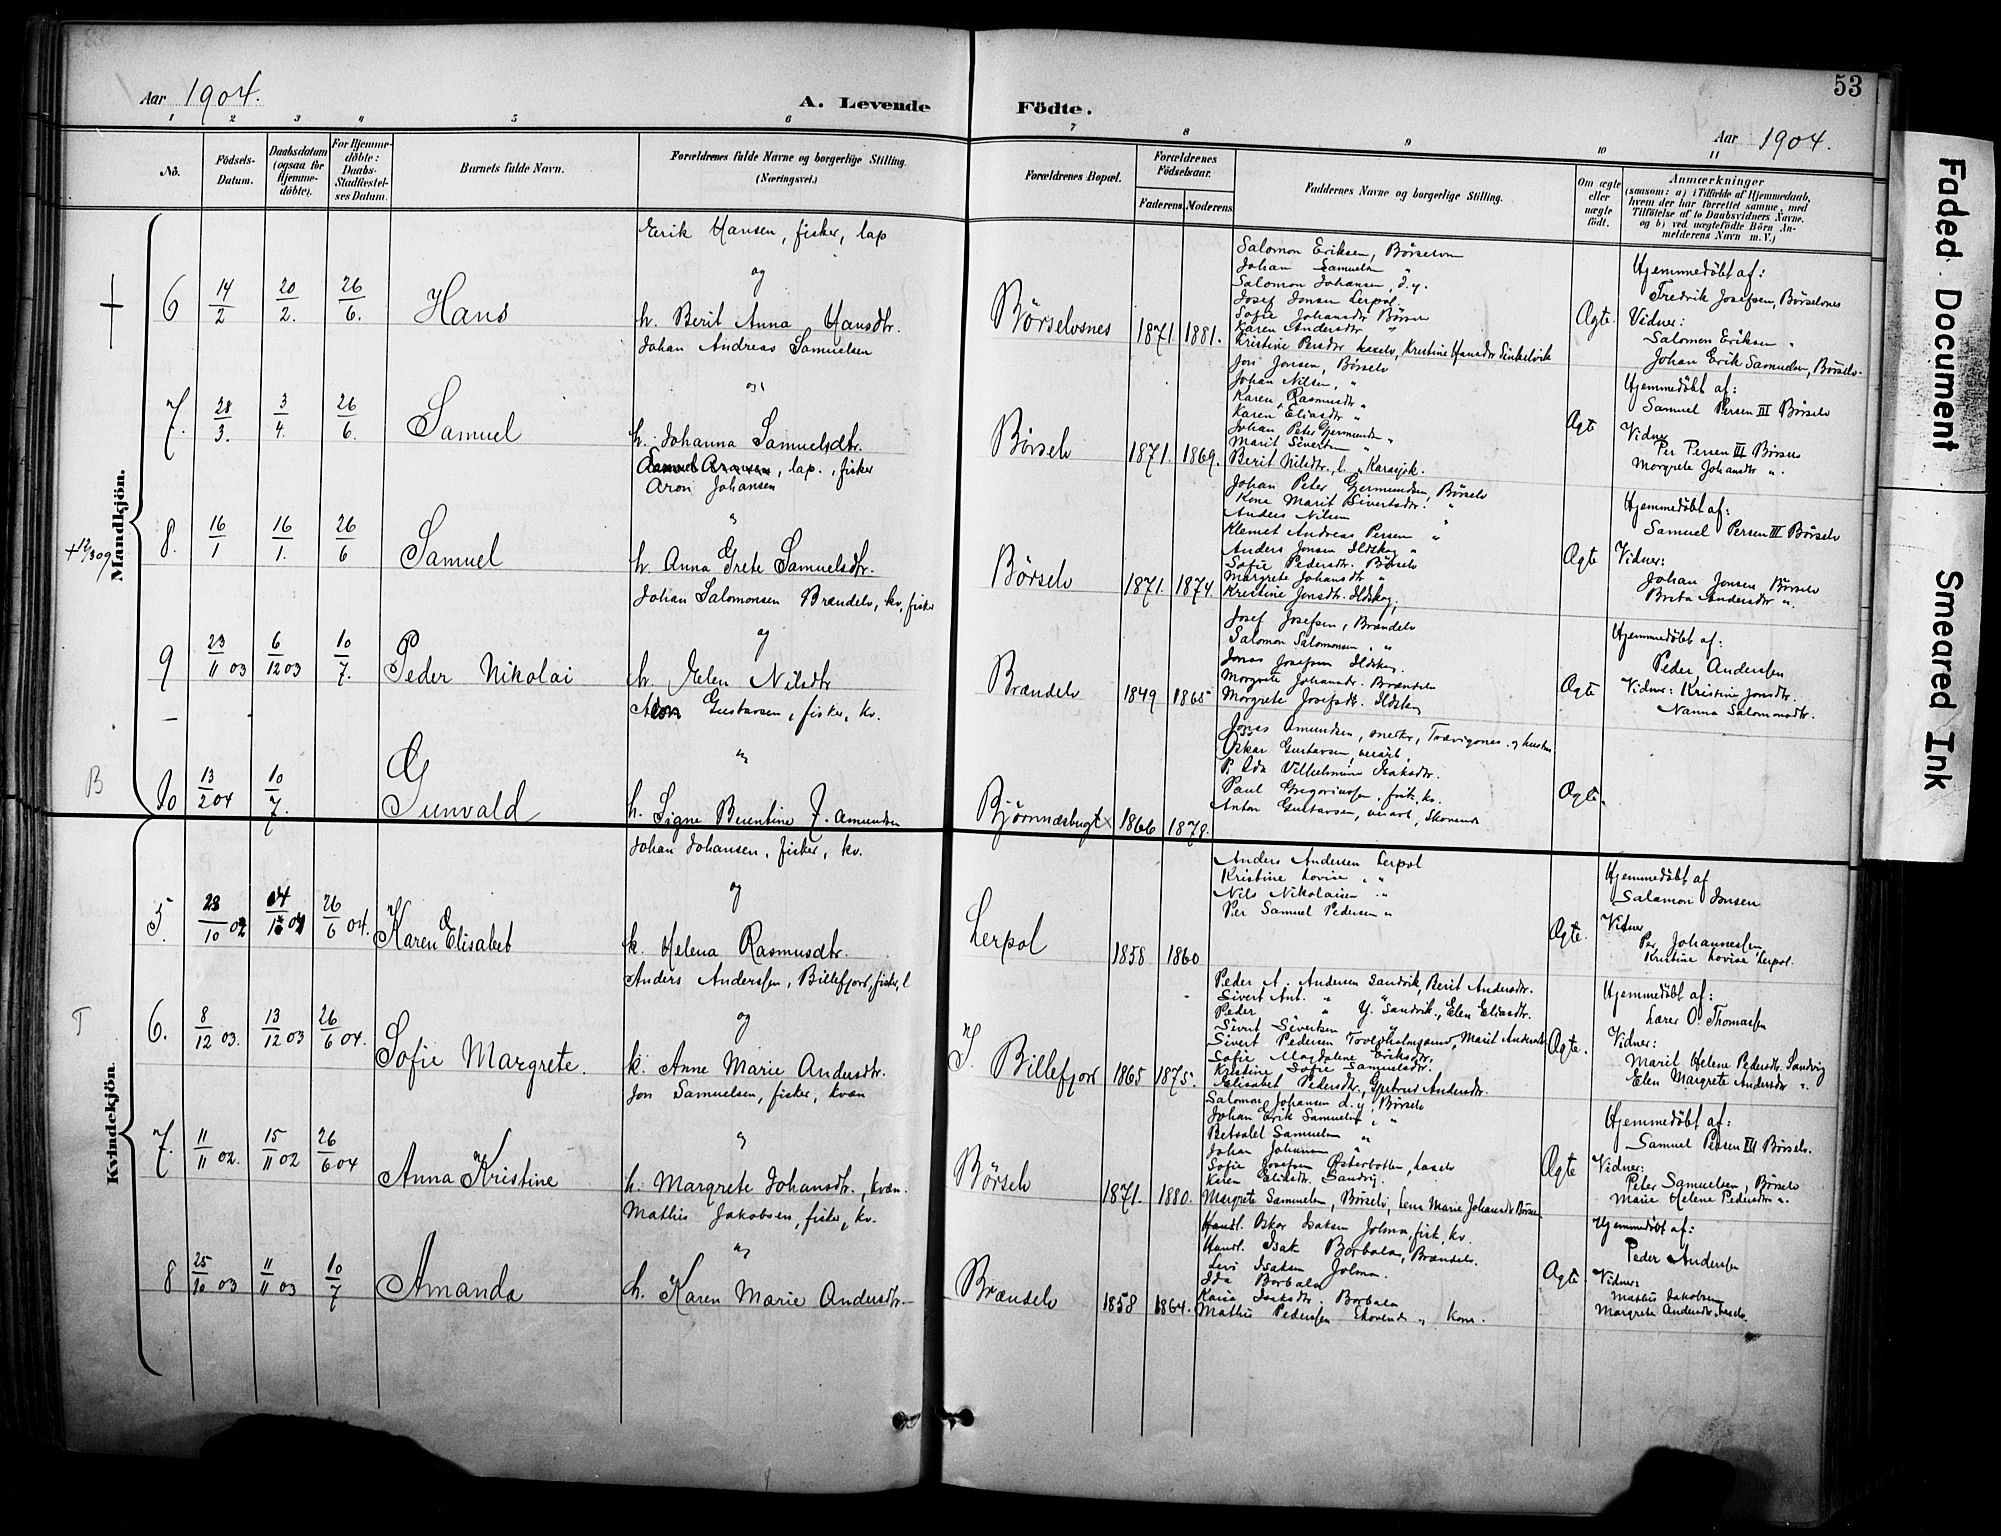 53
Aar 1904.
A. Levende Födte.
Aar 1904.
1 2 3 4 5 6 7 8 9 10 11
No.
Födsels-Datum.
Daabsdatum (ogsaa for Hjemme-döbte).
For Hjemme-döbte: Daabs-Stadfæstel-ses Datum.
Barnets fulde Navn.
Forældrenes fulde Navne og borgerlige Stilling. (Næringsvei.)
Forældrenes Bopæl.
Forældrenes Födselsaar.
Faderens. Moderens.
Faddernes Navne og borgerlige Stilling.
Om ægte eller uægte födt.
Anmærkninger
(saasom: a) i Tilfælde af Hjemmedaab, hvem der har forrettet samme, med Tilföielse af to Daabsvidners Navne. og b) ved uægtefödte Börn An-melderens Navn m. V.)
Mandkjön.
6 14/2 20/2. 26/6. Hans
Erik Hansen, fisker, lap
og
h. Berit Anna Hansdtr.
Børselvsnes 1871. 1881.
Salomon Eriksen, Børselvn
Johan Samuelsn "
Salomon Johansen, d.y.
Josef Jonsen Lerpol.
Sofie Johansdtr Børselv
Karen Andersdtr "
Kristine Persdtr Laxelv, Kristine Hansdtr
Ægte.
Hjemmedøbt af:
Fredrik Josefsen, Børselvnes
Vidner:
Salomon Eriksen "
Johan Erik Samuelsen, Børselv.
7. 28/3. 3/4. 26/6. Samuel
Johan Andreas Samuelsen
og
h. Johanna Samuelsdtr.
Børselv 1871. 1869.
Jon Jonsen, Børselv
Johan Nilsen, "
Karen Rasmusdtr "
Karen Eliasdtr "
Johan Peter Germundsn "
Marit Sivertsn "
Berit Nilsdtr., l. Karasjok.
Ægte
Hjemmedøbt af:
Samuel Persen III Børselv
Vidner
Per Persen III Børselv
Morgrete Johansdtr ".
+ 12/3 09.
8. 16/1 16/1. 26/6 Samuel
Samuel Aronsen, lap., fisker
Aron Johansen
"
h. Anna Grete Samuelsdtr.
Børselv 1871. 1874
Johan Peter Germundsen, Børselv
Kone Marit Sivertsdtr. "
Anders Nilsen "
Klemet Andreas Persen "
Anders Jonsen Ildskog "
Sofie Pedersdtr. Børselv
Margrete Johansdtr "
Kristine Jonsdtr. Ildskog,
Ægte
Hjemmedøbt af:
Samuel Persen III Børselv
Vidner:
Johan Jonsen Børselv
Brita Andersdtr ".
9 23/11 03 6/12 03 10/7. Peder Nikolai
Johan Salomonsen Brændelv, kv, fisker
og
h. Elen Nilsdtr
Brændelv 1849 1865
Josef Josefsen, Brændelv
Salomon Salomonsen, "
Jonas Josefsen Ildskog.
Morgrete Johansdtr. Brændelv
Morgrete Josefsdtr. Ildskog
Ægte
Hjemmedøbt af:
Peder Anderssen
Vidner: Kristine Jonsdtr.
Nanna Salomonsdtr.
B
10 13/2 04 10/7. Gunvald
Gustavsen, fisker, kv.
"
h. Signe Berentine J. Amundsen
Bjørnnæsbugt 1866 1878.
Jonas Amundsen, snedkr,
Oskar Gustavsen,
P. Ida Vilhelmine Isaksdtr.
Paul Gregoriussen, fisk, kv.
Anton Gustavsen,
Ægte.
Kvindekjön.
5. 28/10 02 26/6 04. Karen Elisabet
Johan Johansen, fisker, kv.
og
k. Helena Rasmusdtr.
Lerpol 1858 1860
Anders Andersen Lerpol
Kristine Lovise " "
Nils Nikolaisen "
Per Samuel Pedersen "
Ægte.
Hjemmedøbt af
Salamon Jonsen
Vidner
Per Johannessen
Kristine Lovise Lerpol.
T
6. 8/12 03. 13/12 03 26/6 04. Sofie Margrete.
Anders Anderssen, Billefjord, fisker, l
og
k. Anne Marie Andersdtr.
I. Billefjor 1865 1875.
Peder A. Andersen Sandvik, Berit Andersdtr.
Sivert Ant. " "
Peder " Y. Sandvik., Elen Eliasdtr.
Sivert Sivertsen
Sivert Pedersen Marit Andersdtr
Sofie Magdalene Eriksdtr.
Kristine Sofie Samuelsdtr.
Elisabet Pedersdtr, Gjertrud Andersdtr.
Ægte.
Hjemmedøbt af:
Lærer O. Thomassen
Vidner:
Marit Helene Pedersdtr, Sandvig
Elen Margrete Andersdtr ".
7. 11/11 02. 15/11 02 26/6 04 Anna Kristine
Jon Samuelsen, fisker, kvæn
"
h. Margrete Johansdtr., kvæn.
Børselv 1871. 1880.
Salomon Johansen d.y. Børselv
Johan Erik Samuelsen, "
Betsalel Samuelsn "
Johan Johansen "
Sofie Josefsen Østerbotten, Laxelv
Karen Eliksdtr. Sandvig.
Margrete Samuelsn, Børselv, Lena Marie Johansdtr Børselv
Ægte
Hjemmedøbt af:
Samuel Persen III Børselv.
Vidner:
Peter Samuelsen, Børselv
Marie Helene Pedersdtr ".
8 25/10 03 11/11 03 10/7 Amanda
Mathis Jakobsen, fisker, kv.
"
h. Karen Marie Andersdtr.
Brændelv 1858 1864.
Handl. Oskar Isaksen Jolma, fisk, kv.
Handl. Isak Borbala, Brændelv.
Levi Isaksen Jolma.
Ida Borbala
Kaisa Isaksdtr. Borbala
Mathis Pederssen Kone.
Ægte.
Hjemmedøbt af:
Peder Anderssen
Vidner:
Mathis Jakobsen
Margrete Andersdtr. Laxelv.
Faded Document
Smeared Ink